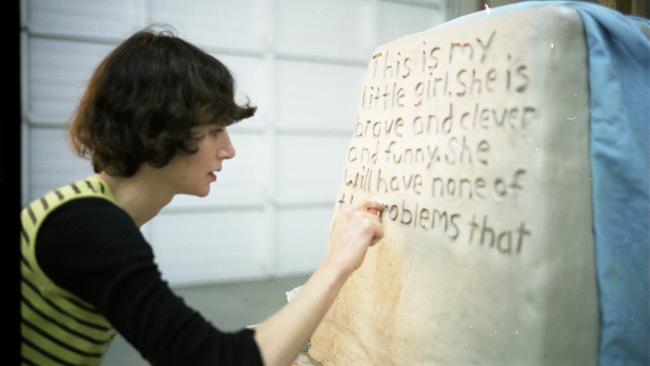 This is my
little girl. She is
brave and clever
and funny. She
will have none of
problems that